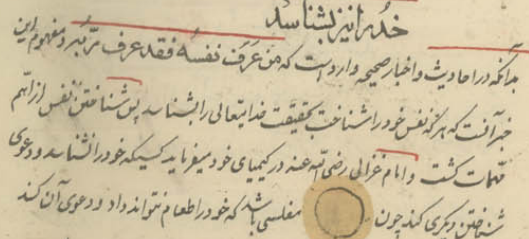 خدا نیز بشناسد
بدانکه در احادیث و اخبار صحیحه وارد است که من عرف نفسه فقد عرف ربه و مفهوم این
خبر آنست که هر که نفس خود را شناخت بحقیقت خدایتعالی را بشناسد پس شناختن نفس از اهم
مهمات گشت و امام غزالی رضی الله عنه در کیمیای خود میفرماید کسیکه خود را نشناسد و دعوی
شناختن دیگری کند چون مفلسی باشد که خود را طعام نتواند داد و دعوی آن کند